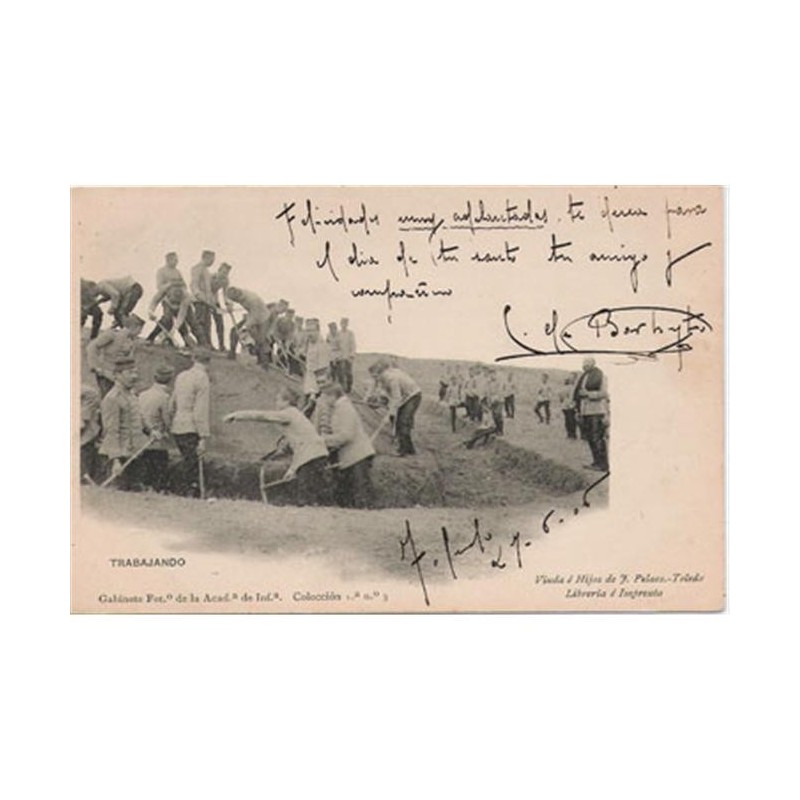 Felicidades muy adelantadas te desea para
el dia de tu santo tu amigo y
compañero
C. de
27-6-06
TRABAJANDO
Viuda é Hijos de J. Pelaez.-Toledo
Librería é Imprenta
Gabinete Fot.º de la Acad.ª de Inf.ª. Colección 1.ª n.º 3